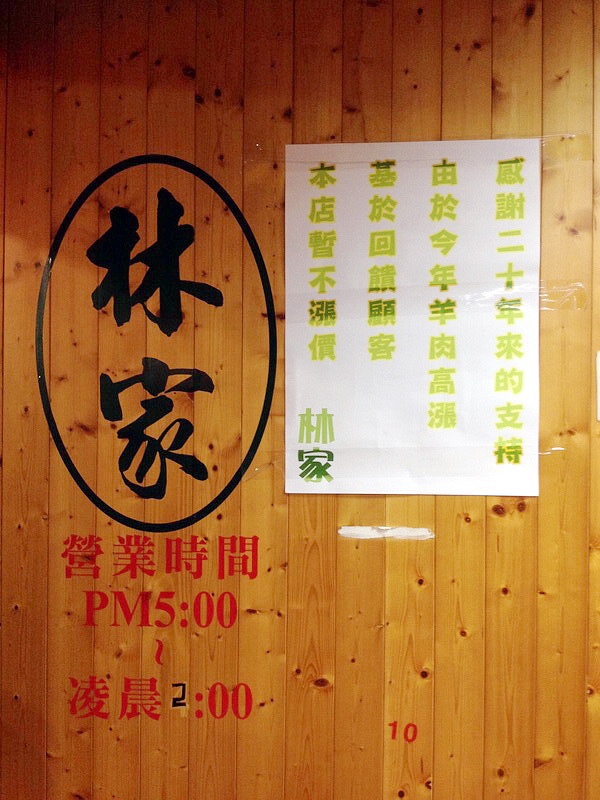 林家
營業時間
PM5:00
~
凌晨2:00
感謝二十年來的支持
由於今年羊肉高漲
基於回饋顧客
本店暫不漲價
林家
10